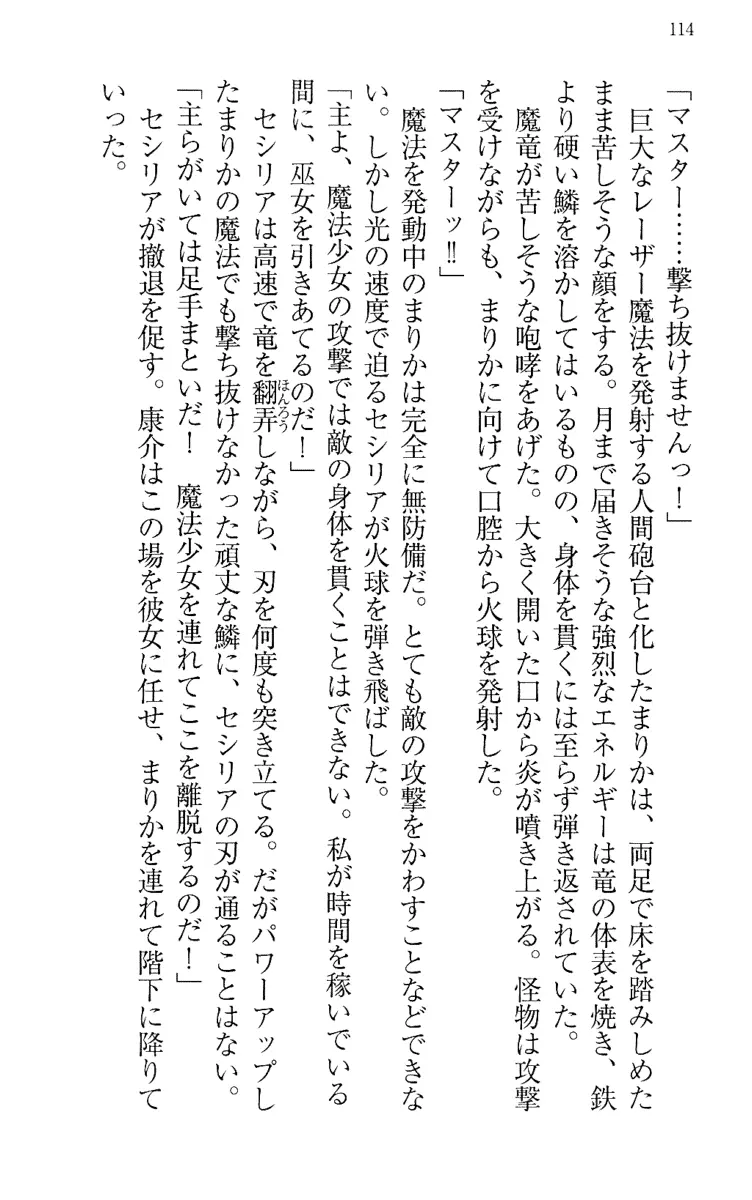 114
「マスター……撃ち抜けませんっ！」
　巨大なレーザー魔法を発射する人間砲台と化したまりかは、両足で床を踏みしめた
まま苦しそうな顔をする。月まで届きそうな強烈なエネルギーは竜の体表を焼き、鉄
より硬い鱗を溶かしてはいるものの、身体を貫くには至らず弾き返されていた。
　魔竜が苦しそうな咆哮をあげた。大きく開いた口から炎が噴き上がる。怪物は攻撃
を受けながらも、まりかに向けて口腔から火球を発射した。
「マスターッ‼」
　魔法を発動中のまりかは完全に無防備だ。とても敵の攻撃をかわすことなどできな
い。しかし光の速度で迫るセシリアが火球を弾き飛ばした。
「主よ、魔法少女の攻撃では敵の身体を貫くことはできない。私が時間を稼いでいる
間に、巫女を引きあてるのだ！」
　セシリアは高速で竜を翻弄ほんろうしながら、刃を何度も突き立てる。だがパワーアップし
たまりかの魔法でも撃ち抜けなかった頑丈な鱗に、セシリアの刃が通ることはない。
「主らがいては足手まといだ！　魔法少女を連れてここを離脱するのだ！」
　セシリアが撤退を促す。康介はこの場を彼女に任せ、まりかを連れて階下に降りて
いった。